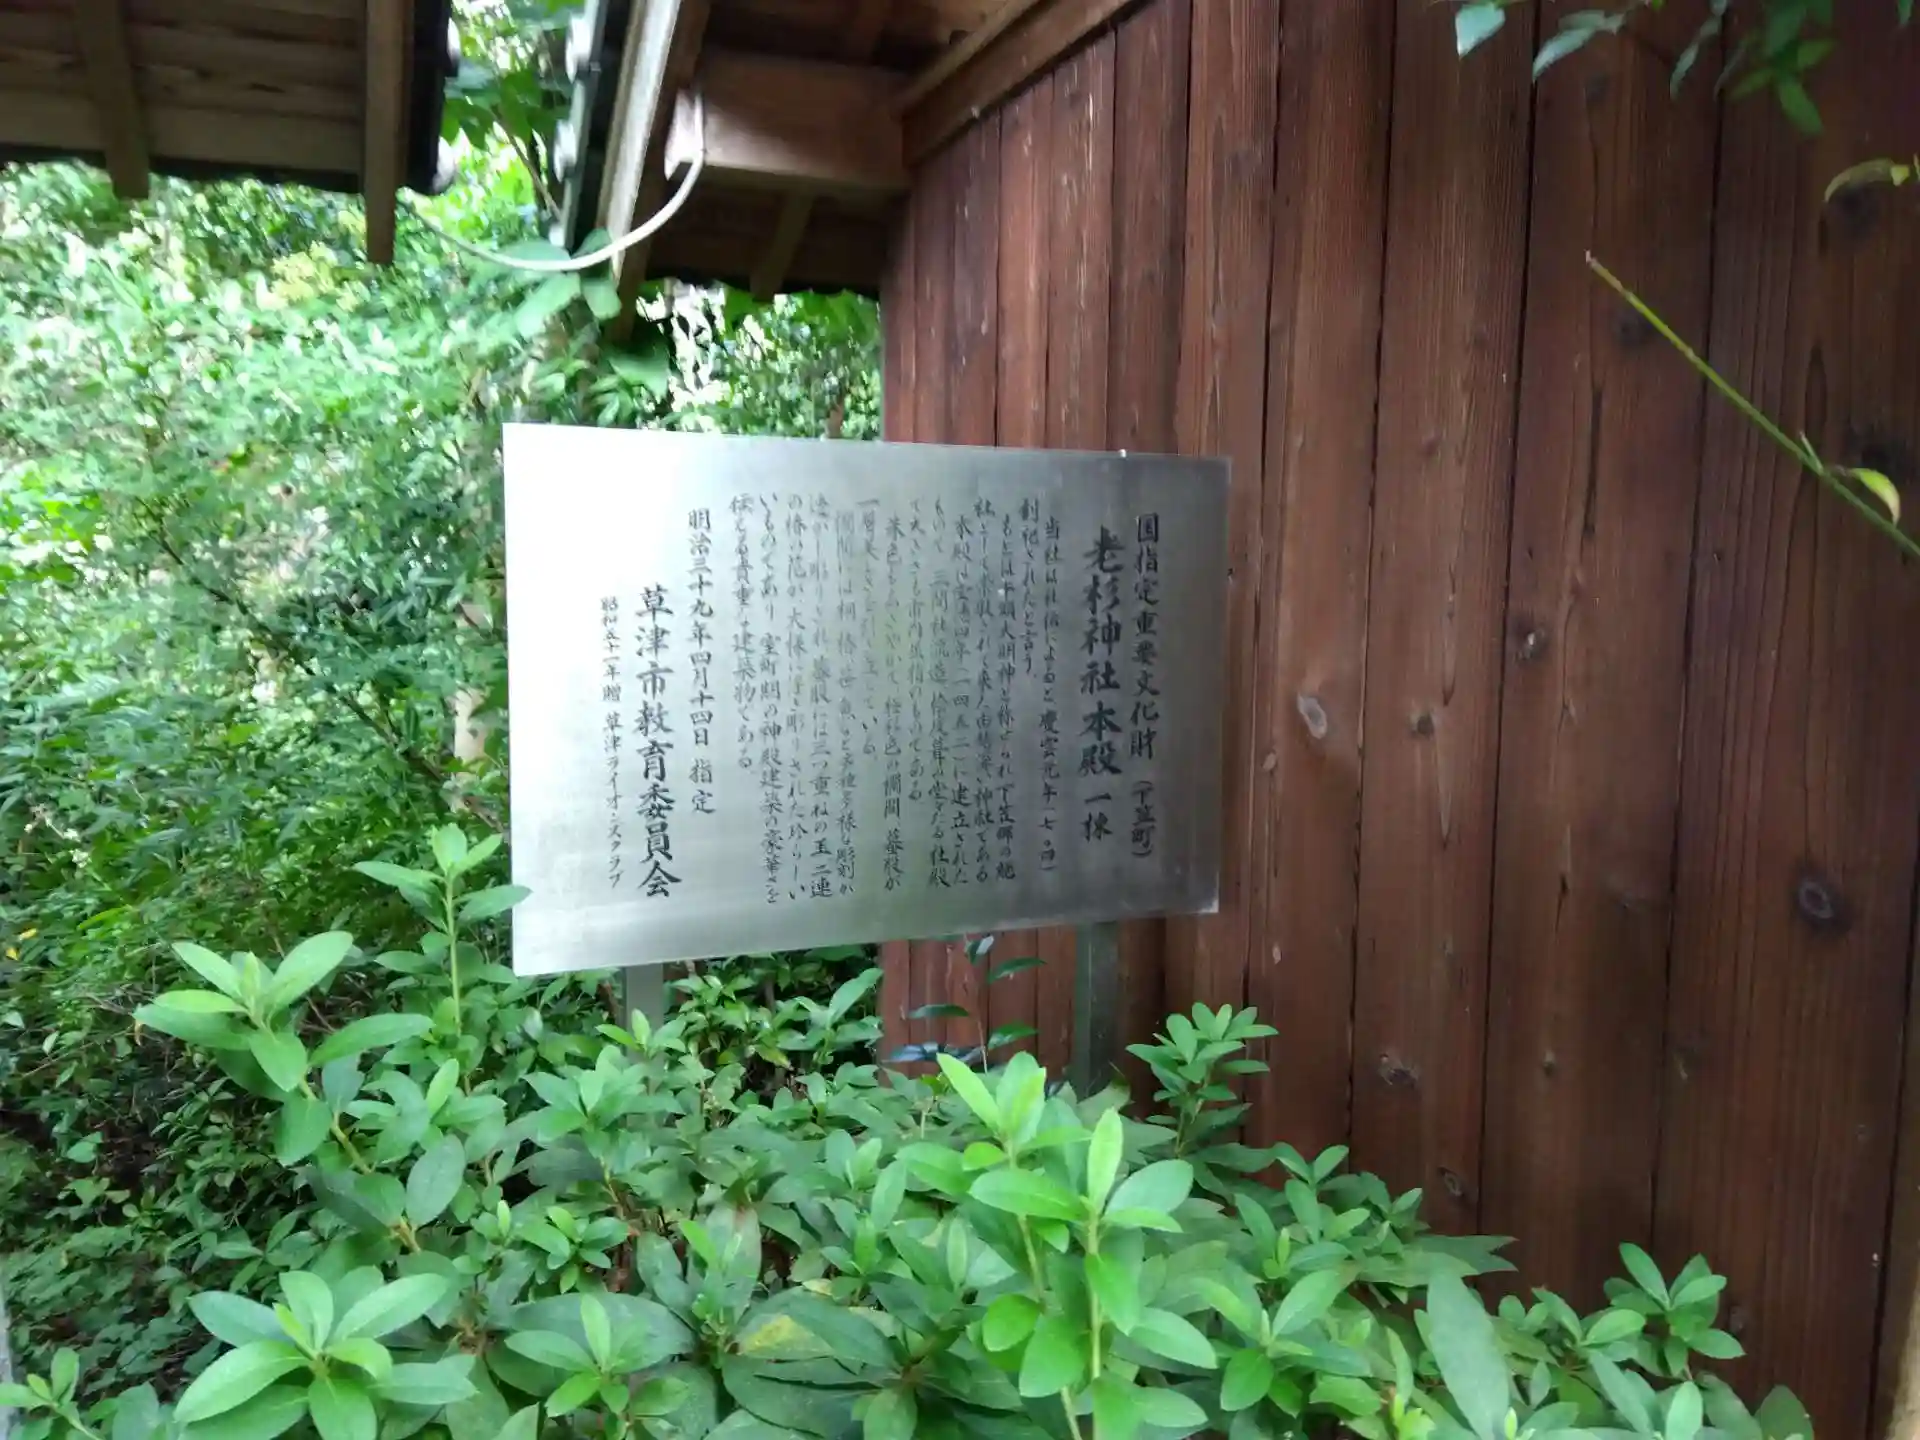 国指定重要文化財(下笠町)
老杉神社本殿一棟
当社は社伝によると慶雲元年(七〇四)
創祀されたと言う。
もとは牛頭天大明神と称せられ下笠郷の総
社として崇敬されて来た由緒深い神社である
本殿は宝徳四年(一四五二)に建立された
もので三間社流造檜皮葺の堂々たる社殿
で大きさも市内屈指のものである
朱色もあざやかで極彩色の欄間蟇股が
一層美しさを引立てている。
欄間には桐椿笹魚など多種多様な彫刻が
透かし彫りされ蟇股には三つ重ねの玉二連
の椿の花が大様に浮き彫りされた珍らしい
いものであり室町期の神殿建築の豪華さを
伝える貴重な建築物である。
明治三十九年四月十四日指定
草津市教育委員会
昭和五十一年贈 草津ライオンズクラブ